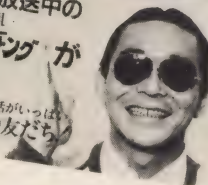 放送中の
ングが
話がいっぱい
友だち